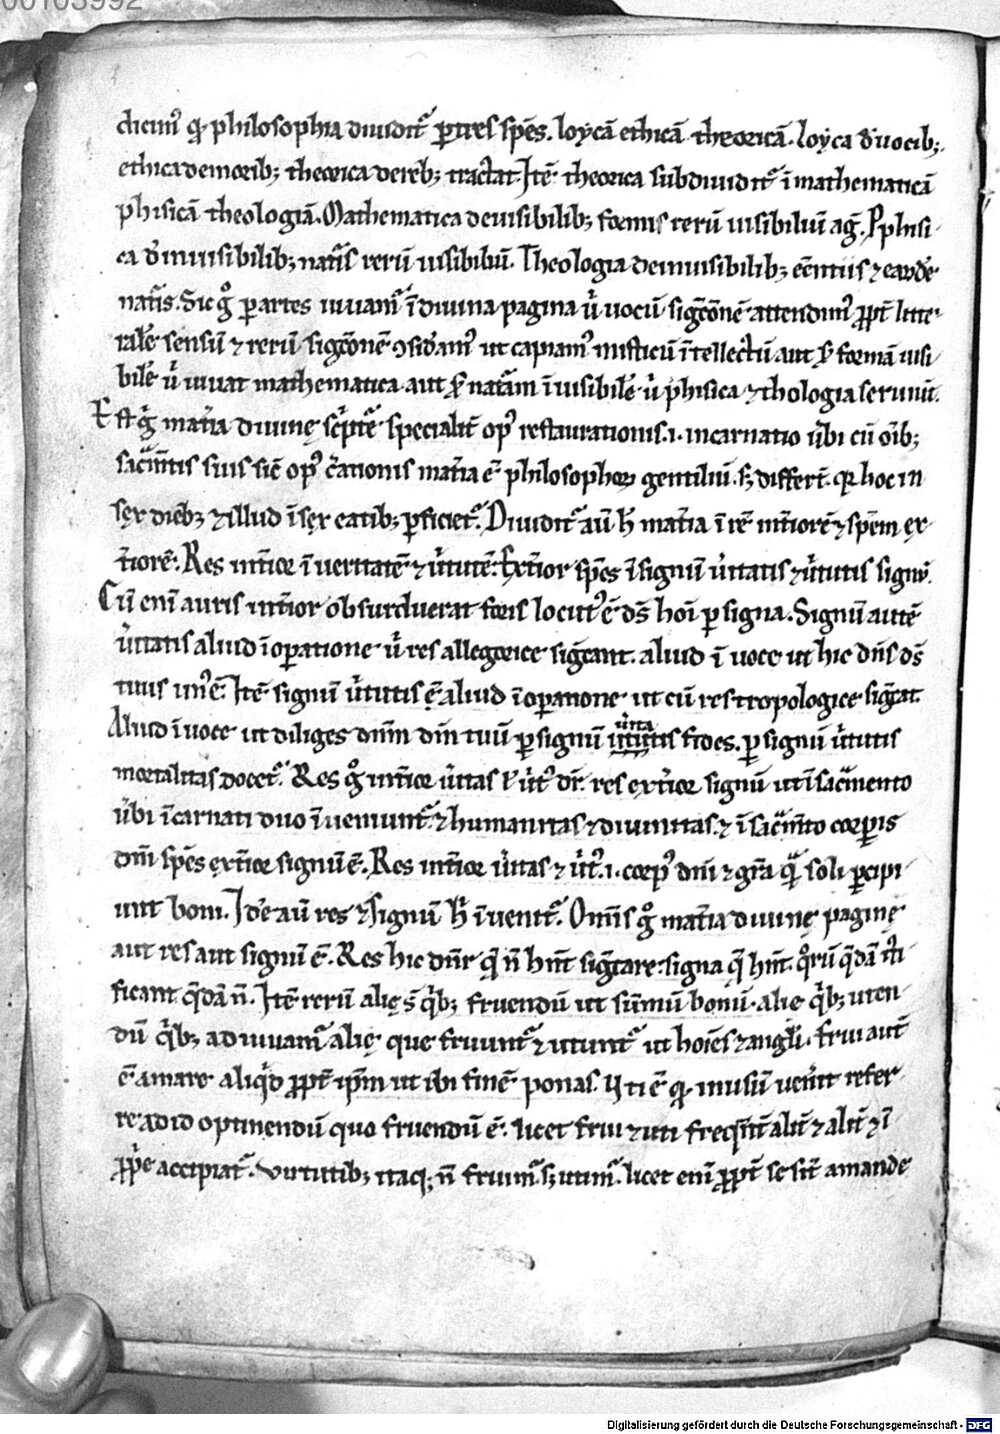 00103992
dicim᷒ qͥ philosophia diuidit᷑ ꝑ tres spēs. loycā ethicā theoricā. loyca đ uocib;.
ethica de morib; theorica de reb; tractat. Itē theorica subdiuidit᷑ ī mathematicā
phisicā theologiā. Mathematica de uisibilib; formis rerū uisibiliū aḡ. phisi-
ca đ inuisibilib; nat̄is rerū uisibiliū. Theologia de inuisibilib; eēntiis ⁊ earūđe
nat̄is. Sic gͦ ꝑ artes iuuam᷑ ī diuina pagina ū uocū sigc̄onē attendim᷒ ꝓpt̄ litte-
ralē sensū ⁊ rerū sigc̄onē ꝯsiđam᷒ ut capiam᷒ misticū ītellectū aut ꝑ formā uisi-
bilē ū iuuat mathematica aut ꝑ nat̄am īuisibilē ū phisica ⁊ thologia seruiūt.
Est gͥ mat̄ia diuinę sc̄ptͤ specialit̄ op᷒ restaurationis .i. incarnatio ūbi cū oīb;
sac̄mtis suis sic̄ op᷒ c̄ationis mat̄ia ē philosophoꝝ gentiliū. s; differt̄. qꝛ hoc in
sex dieb; ⁊ illud ī sex etatib; ꝑficiet᷑. Diuidit᷑ aū h̄ mat̄ia ī rē int̄iorē ⁊ spēm ex-
t̄iorē. Res int̄ior ī ueritatē ⁊ ūtutē. Ext̄ior spēs ī signū ūitatis ⁊ ūtutis signū.
Cū enī auris int̄ior obsurduerat foris locut᷒ ē ds̄ hoī ꝑ signa. Signū autē
ūitatis aliud ī oꝑatione ū res allegorice sigc̄ant. aliud ī uoce ut hic dn̄s ds̄
tuus un᷒ ē. Itē signū ūtutis ē aliud ī oꝑatione ut cū res tropologice sigc̄at.
Aliud ī uoce ut diliges dn̄m dm̄ tuū ꝑ signū ūita ūtutis fides. ꝑ signū ūtutis
mortalitas docet᷑. Res gͦ int̄ior ūitas ł ūt᷒ dr̄. res ext̄ior signū ut ī sac̄mento
ūbi īcarnati duo īueniunt᷑ ⁊ humanitas ⁊ diuinitas. ⁊ ī sac̄mto corꝑis
dn̄i spēs ext̄ior signū ē. Res int̄ior ūitas ⁊ ūt᷒ .i. corp᷒ dn̄i ⁊ gr̄a qͣ soli ꝑcipi-
unt boni. Idē aū res ⁊ signū h̄ īuenit᷑. Omīs gͦ mat̄ia diuinę paginę
aut res aut signū ē. Res hic dn̄r qͥ n̄ hn̄t sigc̄are: signa qͥ hn̄t. qͦrū qͥdā iti
ficant qͥdā n̄. Itē rerū alię s̄ qͥb; fruendū ut sūmū bonū. alię qͥb; uten-
dū qͥb; adiuuam᷑ alię que fruunt᷑ ⁊ utunt᷑ ut hoīes ⁊ angl̄i. frui aut̄
ē amare aliqͥd ꝓpt̄ ipm̄ ut ibi finē ponas. Uti ē qͥ in usū uen̄it refer-
re ad id optinendū quo fruendū ē. licet frui ⁊ uti freqn̄t̄ alit̄ ⁊ alit̄ ⁊ ī
ꝓpͥe accipiat᷑. Virtutib; itaq; n̄ fruim᷑ s; utim᷑. licet enī ꝓpt̄ se sīt amande
Digitalisierung gefördert durch die Deutsche Forschungsgemeinschaft - DFG